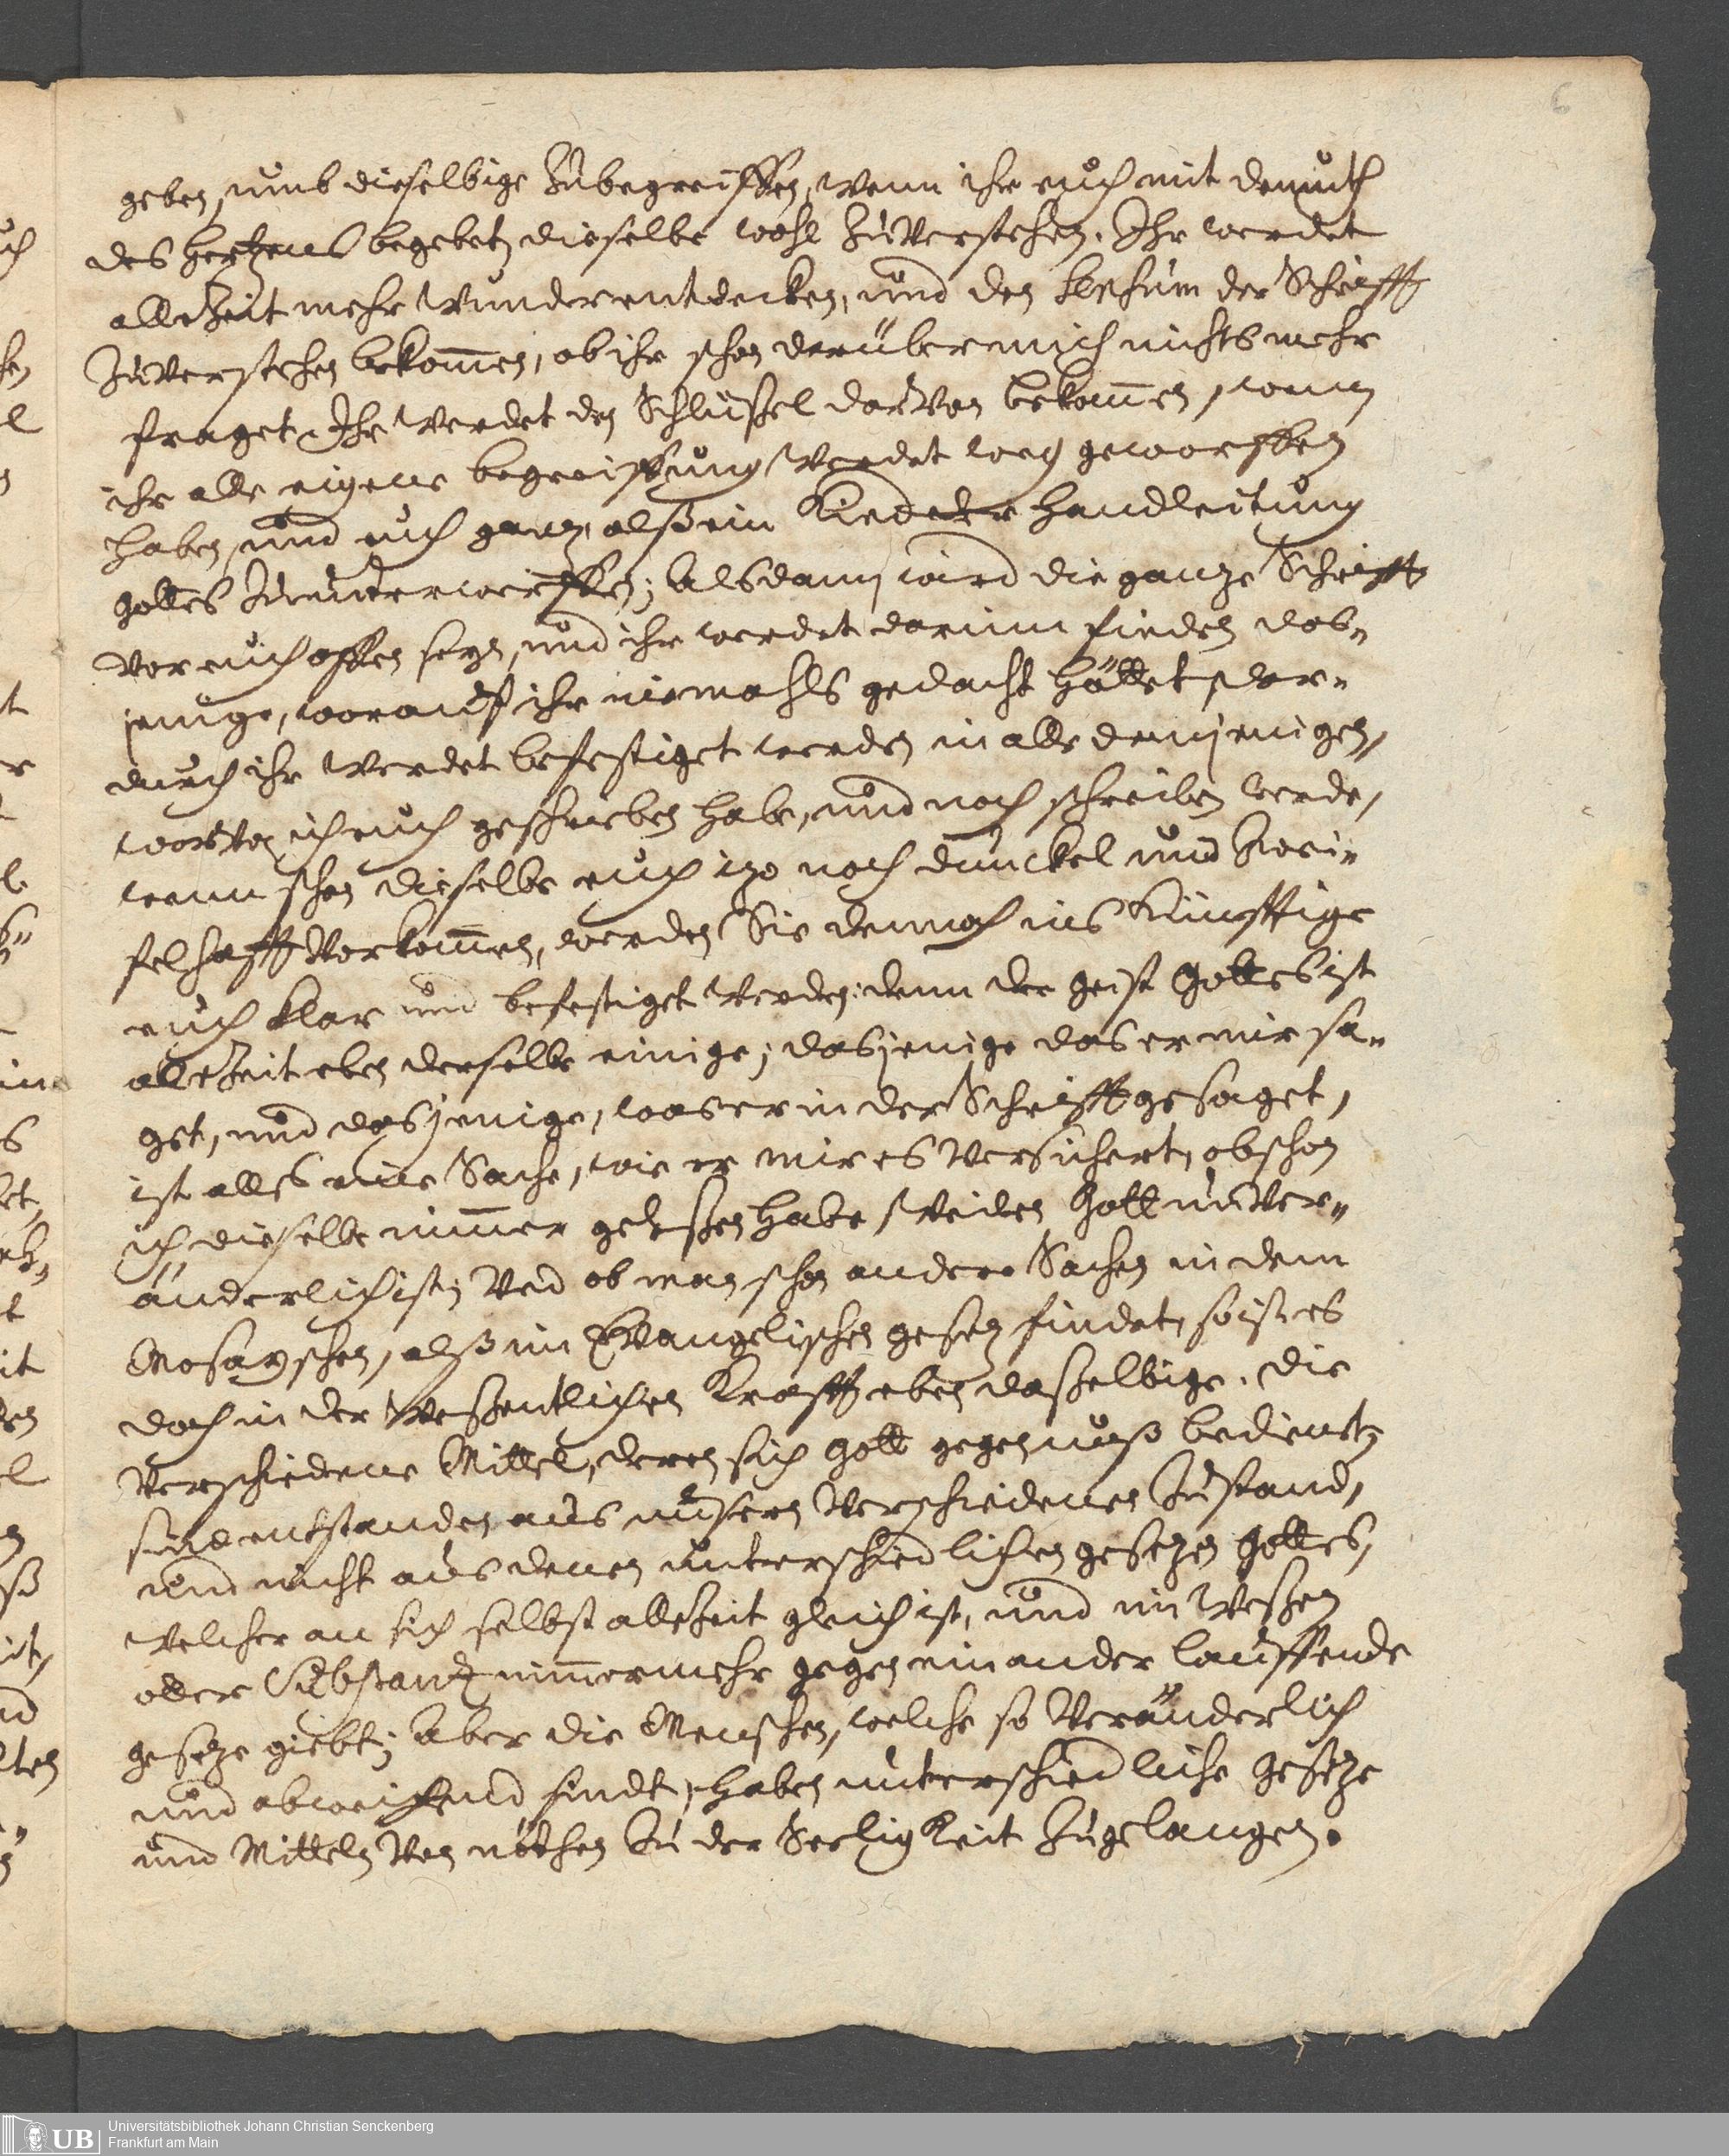 6
geben, umb dieselbige Zubegreiffen, wenn ihr euch mit demuth
des hertzens begebet, dieselbe wohl Zuverstehen. Ihr werdet
allezeit mehr wunder entdecken, und den der Schrifft
Zuverstehen bekom̄en, ob ihr schon darüber mich nichts mehr
fraget. Ihr werdet den Schlüßel darvon bekom̄en, wenn
ihr alle eigene begreiffung werdet weg geworffen
haben, und euch ganz, alß ein Kied der handleitung
Gottes Zuunterwerffen; Alsdann wird die ganze Schrifft
vor euch offen seyn, und ihr werdet darinn finden das-
jenige, worauff ihr niemahls gedacht hättet, dar-
durch ihr werdet befestiget werden in alle demjenigen,
worvon ich euch geschrieben habe, und noch schreiben werde,
wenn schon dieselbe euch izo noch dunckel und Zwei-
felhafft vorkom̄en, werden Sie dennoch ins künfftige
euch klar und befestiget werden: denn der geist Gottes ist
allezeit eben derselbe einige; dasjenige das er mir sa-
get, und dasjenige, was er in der Schrifft gesaget,
ist alles eine Sache, wie er mir es versichert, obschon
ich dieselbe nim̄er geleßen habe, weilen Gott unver-
änderlich ist; Und ob man schon andere Sachen in dem
Mosayschen, alß im Evangelischen gesetz findet, so ist es
doch in der Weßentlichen Krafft eben daßelbige. die
verschiedene Mittel, deren sich Gott gegen unß bedienet,
sind entstanden aus unsern verschiedenen Zustand,
und nicht aus denen unterschiedlichen gesezen Gottes,
welcher an sich selbst allezeit gleich ist, und im Weßen
oder Substantz nim̄ermehr gegen einander lauffende
geseze giebt; Aber die Menschen, welche so veränderlich
und abweichend sindt, haben unterschiedliche geseze
und Mitteln von nöthen Zu der Seeligkeit Zugelangen.
UB
Universitätsbibliothek Johann Christian Senckenberg
Frankfurt am Main